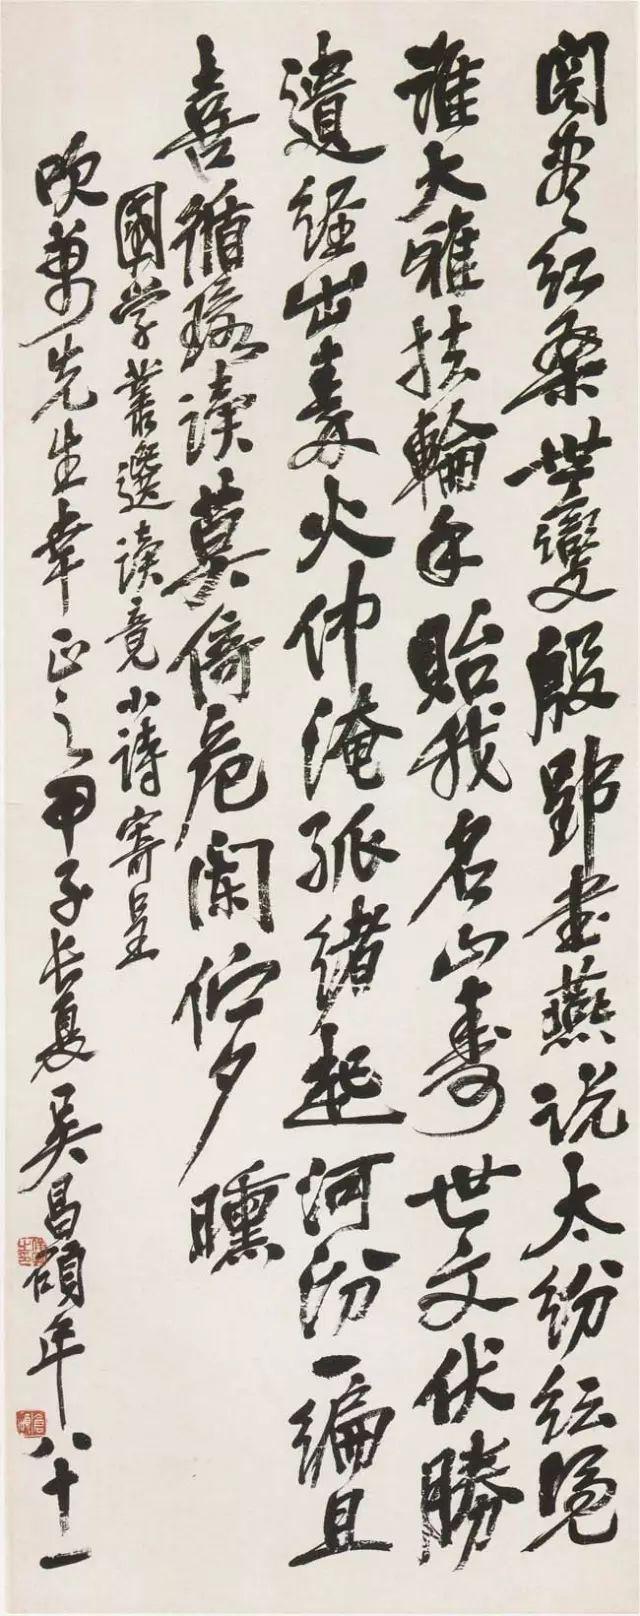 閱盡紅桑世變殷郢書燕說太紛紜憑
誰大雅扶輪手貽我名山壽世文伏勝
遺經出秦火仲淹孤緒起河汾一編且
喜循環讀莫倚危闌佇夕曛
國學叢選讀竟小詩寄呈
吹萬先生幸正之甲子長夏吳昌碩年八十一